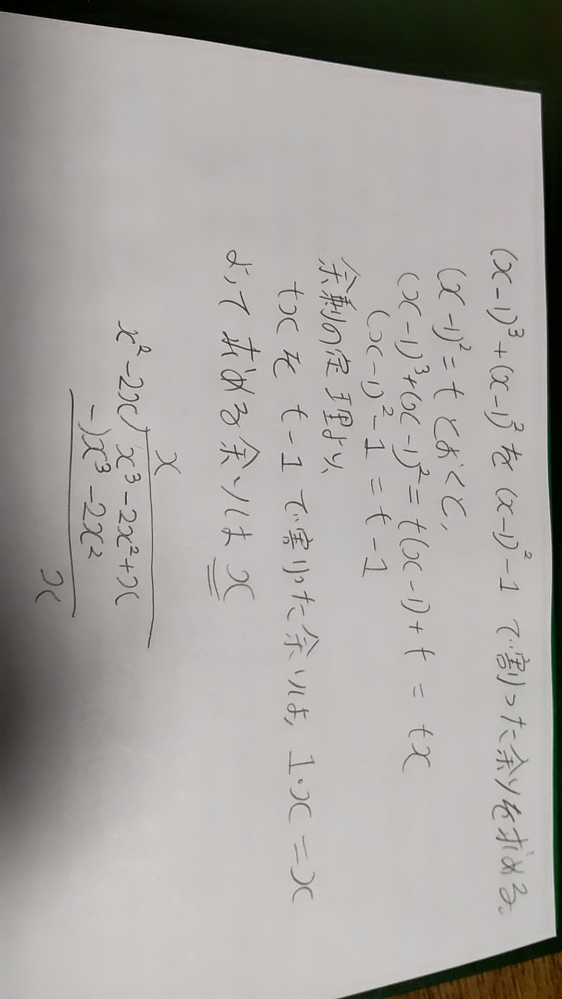 (x-1)³+(x-1)²を(x-1)²-1で割った余りを求める。
(x-1)²=tとおくと,
(x-1)³+(x-1)²=t(x-1)+t=tx
(x-1)²-1=t-1
余剰の定理より、
txをt-1で割った余りは, 1·x=x
よって求める余りはx
x
x²-2x)x³-2x²+x
-)x³-2x²
x